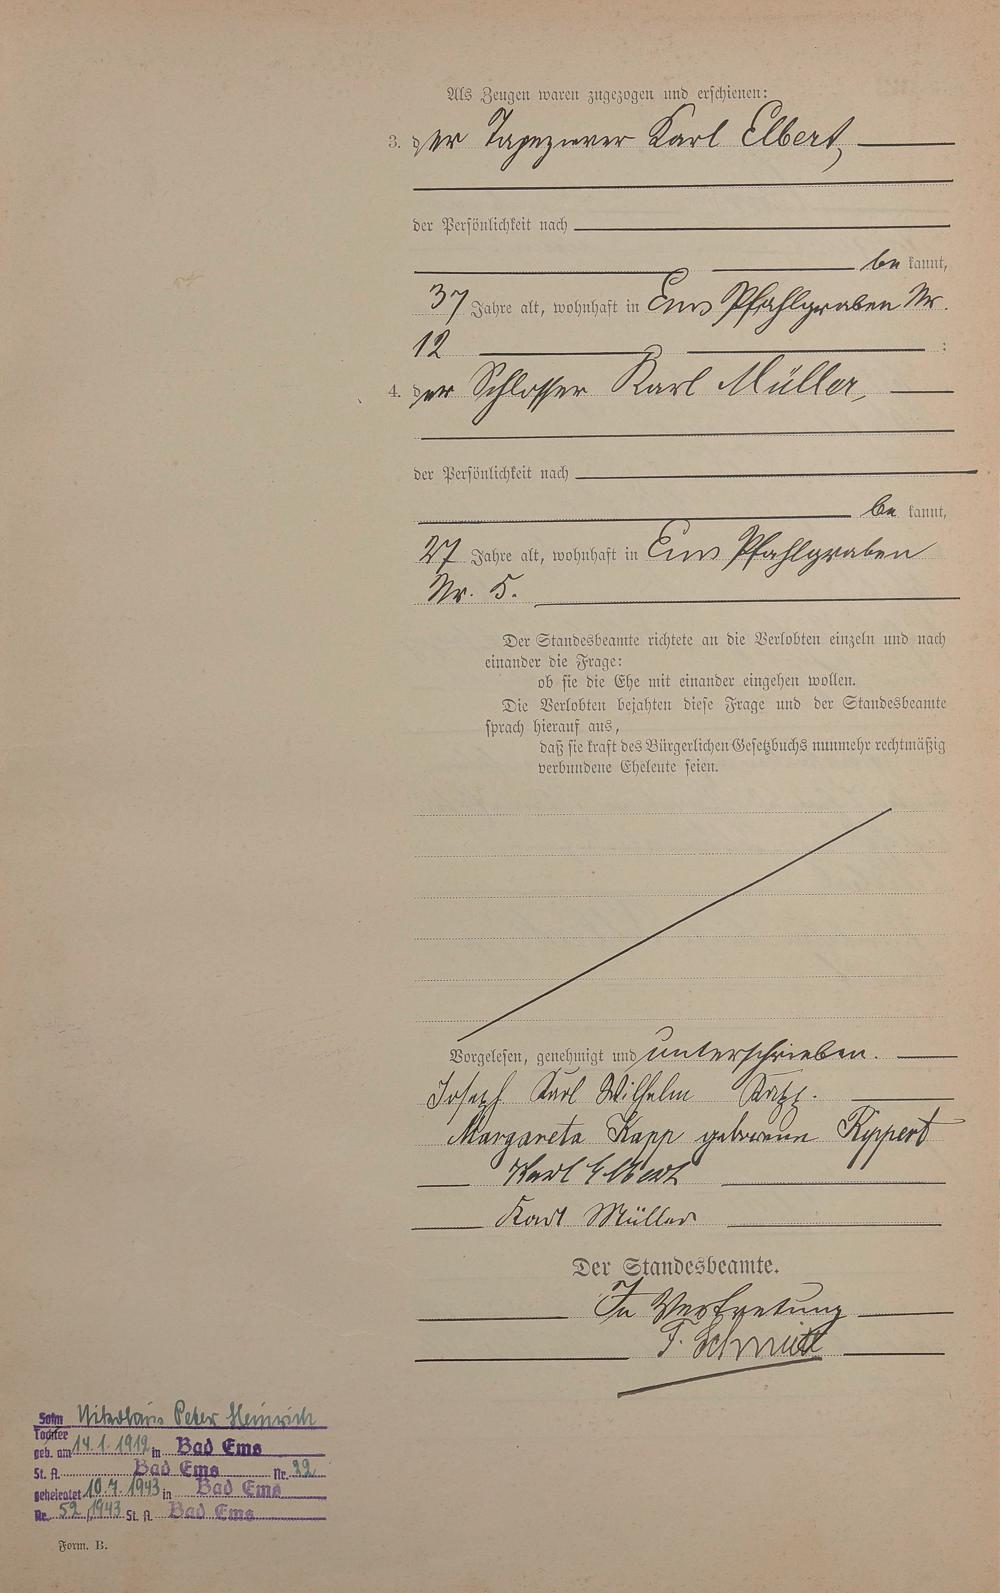 Als Zeugen waren zugezogen und erschienen:
3. der Tapezierer Karl Elbert,
der Persönlichkeit nach
be kannt,
37 Jahre alt, wohnhaft in Ems Pfahlgraben Nr.
12 ;
4. der Schlosser Karl Müller,
der Persönlichkeit nach
be kannt,
27 Jahre alt, wohnhaft in Ems Pfahlgraben
Nr. 5.
Der Standesbeamte richtete an die Verlobten einzeln und nach
einander die Frage:
ob sie die Ehe mit einander eingehen wollen.
Die Verlobten bejahten diese Frage und der Standesbeamte
sprach hierauf aus,
daß sie kraft des Bürgerlichen Gesetzbuchs nunmehr rechtmäßig
verbundene Eheleute seien.
Vorgelesen, genehmigt und unterschrieben.
Joseph Karl Wilhelm Kapp.
Margareta Kapp geborenen Rippert
Karl Elbert
Karl Müller
Der Standesbeamte.
In Vertretung
F. Schmitt
Sohn Nikolaus Peter Heinrich
Tochter
geb. am 14.1.1912 in Bad Ems
St. A. Bad Ems Nr.
geheiratet 10.7.1943 in Bad Ems
Nr. 52/1943 St. A. Bad Ems
Form. B.